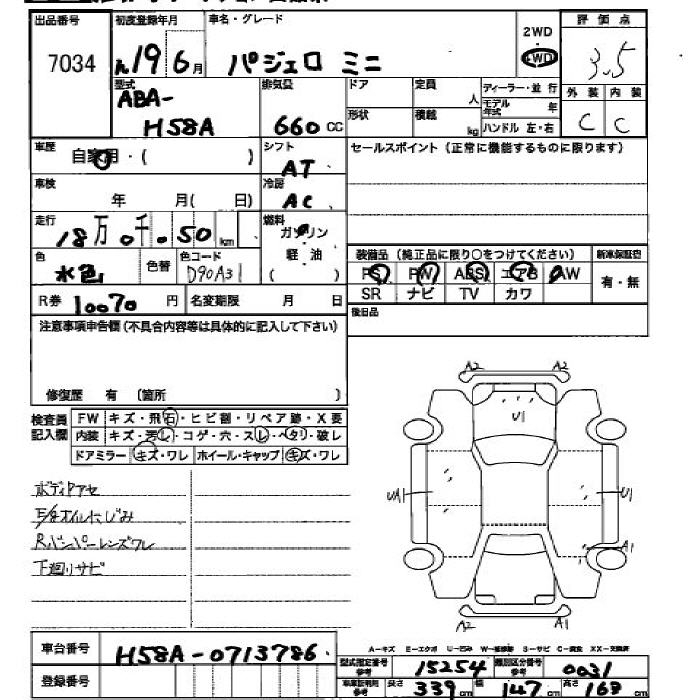 出品番号 初度登録年月 車名・グレード 2WD 評価点
7034 h 19 6月 パジェロ ミニ 4WD 3.5
型式 排気量 ドア 定員 人 ディーラー・並行 外装 内装
ABA- モデル年式 年
H58A 660 cc 形状 積載 kg ハンドル 左・右 C C
車歴 自家用・( ) シフト AT セールスポイント (正常に機能するものに限ります)
車検 年 月( 日) 冷房 AC
走行 18万0千.50 km 燃料 ガソリン
色 水色 色替 色コード D90A31 軽・油 ( ) 装備品 (純正品に限り○をつけてください) 新車保証書
PS PW ABS エアB AW 有・無
R券 10070 円 名変期限 月 日 SR ナビ TV カワ
注意事項申告欄(不具合内容等は具体的に記入して下さい) 後日品
修復歴 有 〔箇所 〕
検査員記入欄 FW キズ・飛石・ヒビ割・リペア跡・X要
内装 キズ・汚レ・コゲ・穴・スレ・ヘタリ・破レ
ドアミラー キズ・ワレ ホイール・キャップ キズ・ワレ
ボディアセ
オイルにじみ
Rバンパーレンズワレ
下廻りサビ
A2 A2
U1
UA1 U1
A1
A2 A1
車台番号 H58A-0713786
登録番号
A-キズ E-エクボ U-凹み W-補修跡 S-サビ C-腐食 XX-交換済
型式指定番号 参考 15254 類別区分番号 参考 0031
車庫証明用 参考 長さ 339 cm 幅 147 cm 高さ 163 cm